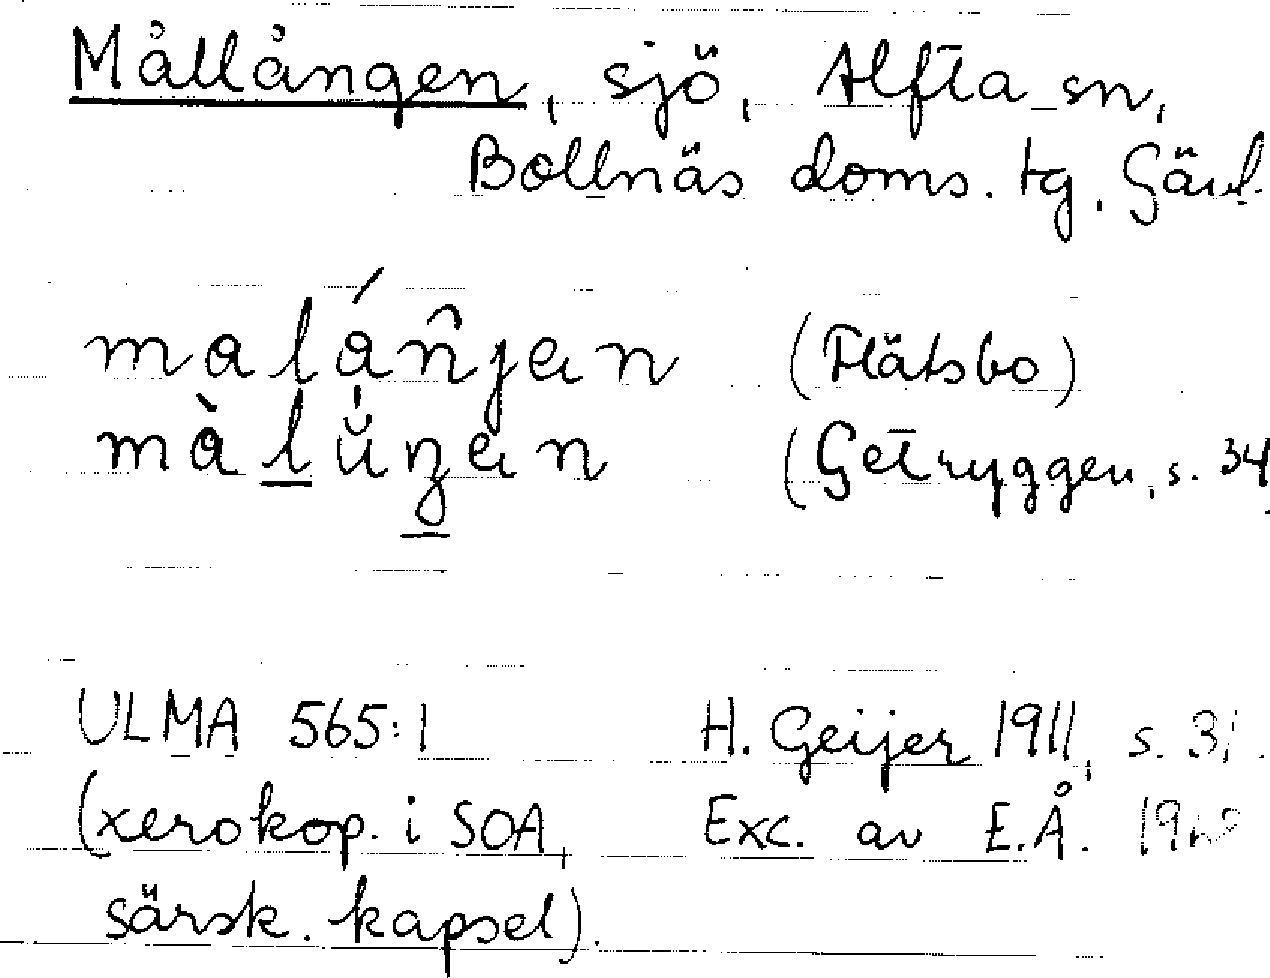 Mållången, sjö, Alfta sn,
Bollnäs doms. tg. Gävl.
malán̂jen (Flätsbo)
màlŭŋen (Getryggen, s. 34
ULMA 565:1 H. Geijer 1911, s. 3
(xerokop. i SOA, Exc. av E.Å.
särsk. kapsel).